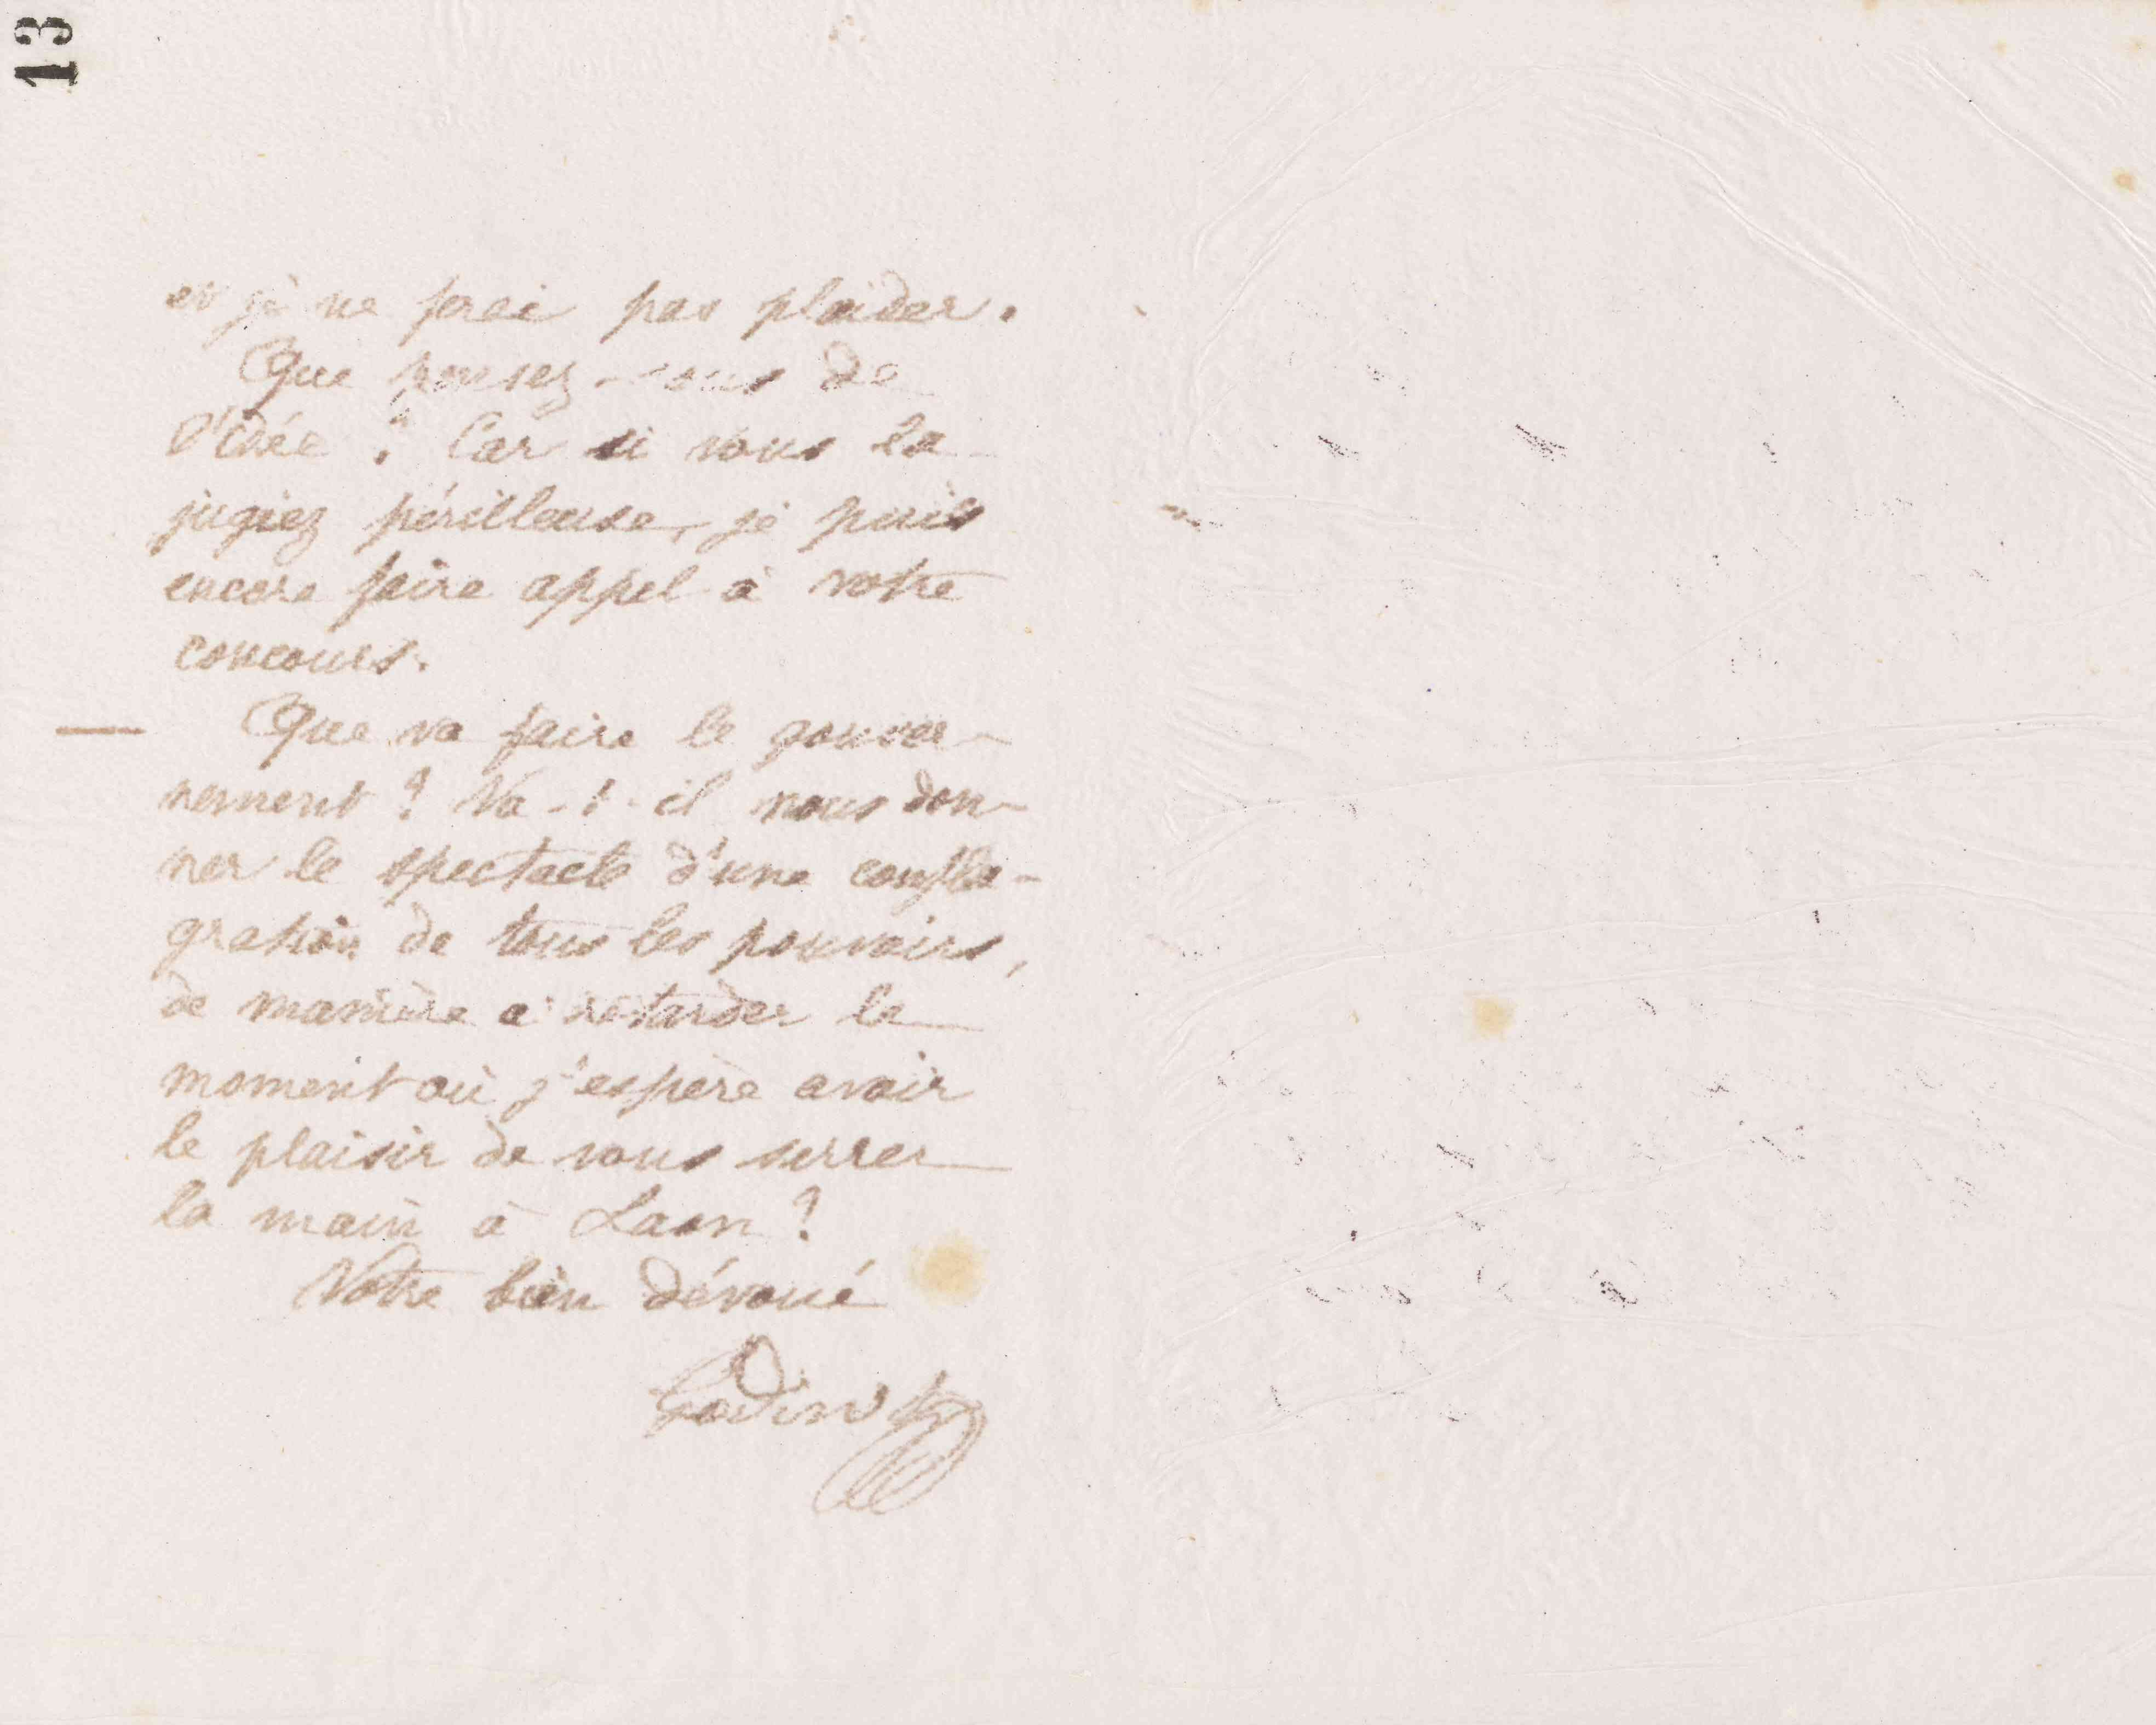 13
et je ne ferai pas plaider.
Que pensez-vous de
l'idée ? Car si vous la
jugiez périlleuse, je puis
encore faire appel à votre
concours.
— Que va faire le gouver-
nement ? Va-t-il nous don-
ner le spectacle d'une confla-
gration de tous les pouvoirs,
de manière à retarder le
moment où j'espère avoir
le plaisir de vous serrer
la main à Laon ?
Votre bien dévoué
Godin